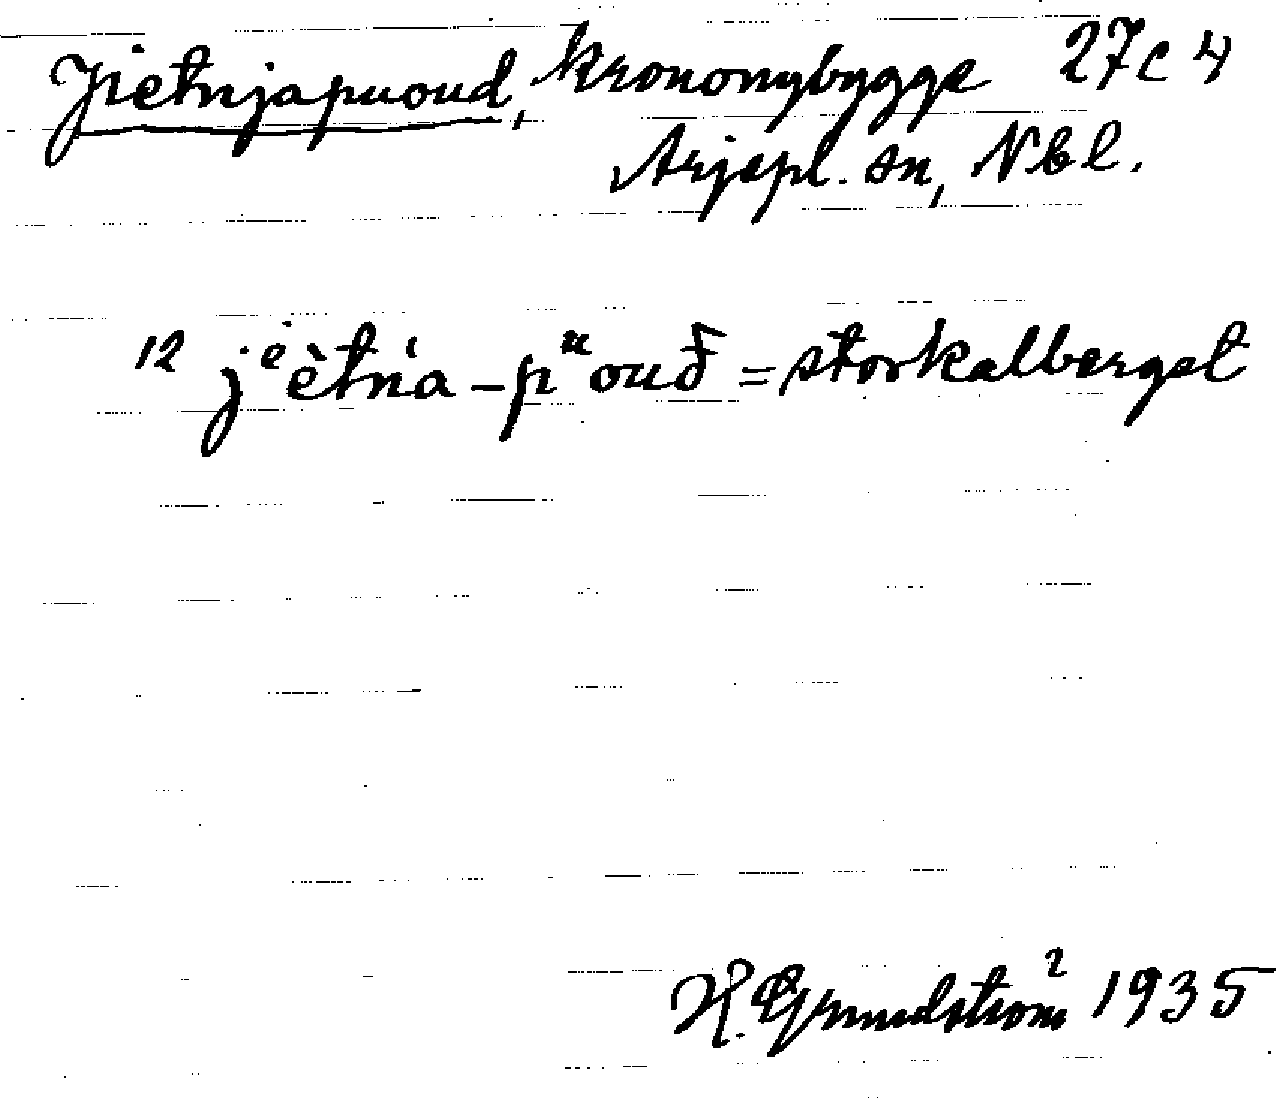 Jietnjapuoud, krononybygge 27c 4
Arjepl. sn, Nbl.
12 jᵉètńa-pᵘouđ = storkalberget
H. Grundström² 1935